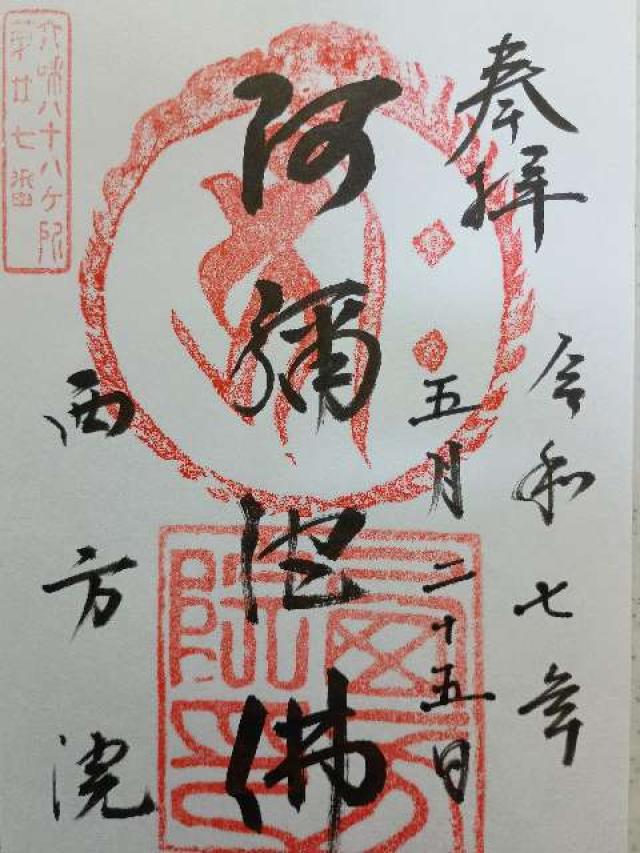 奉拝
令和七年
五月二十五日
阿彌陀佛
西方院
八十八ケ所
第廿七番